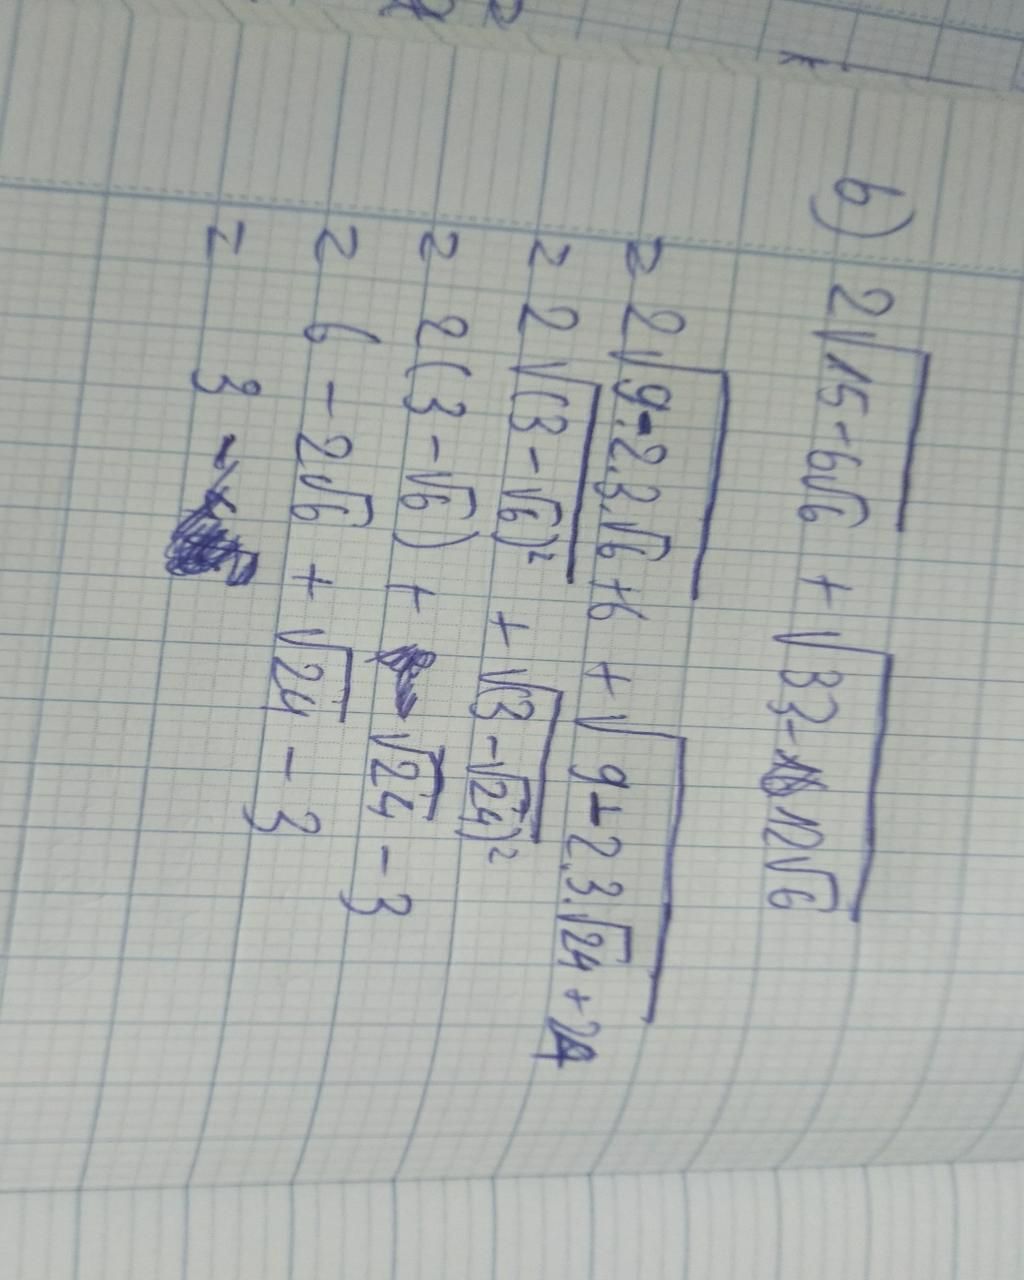 b) 2√15-6√6 + √33-12√6
= 2√9-2.3.√6+6 + √9-2.3.√24+24
= 2√(3-√6)² + √(3-√24)²
= 2(3-√6) + √24 - 3
= 6 - 2√6 + √24 - 3
= 3